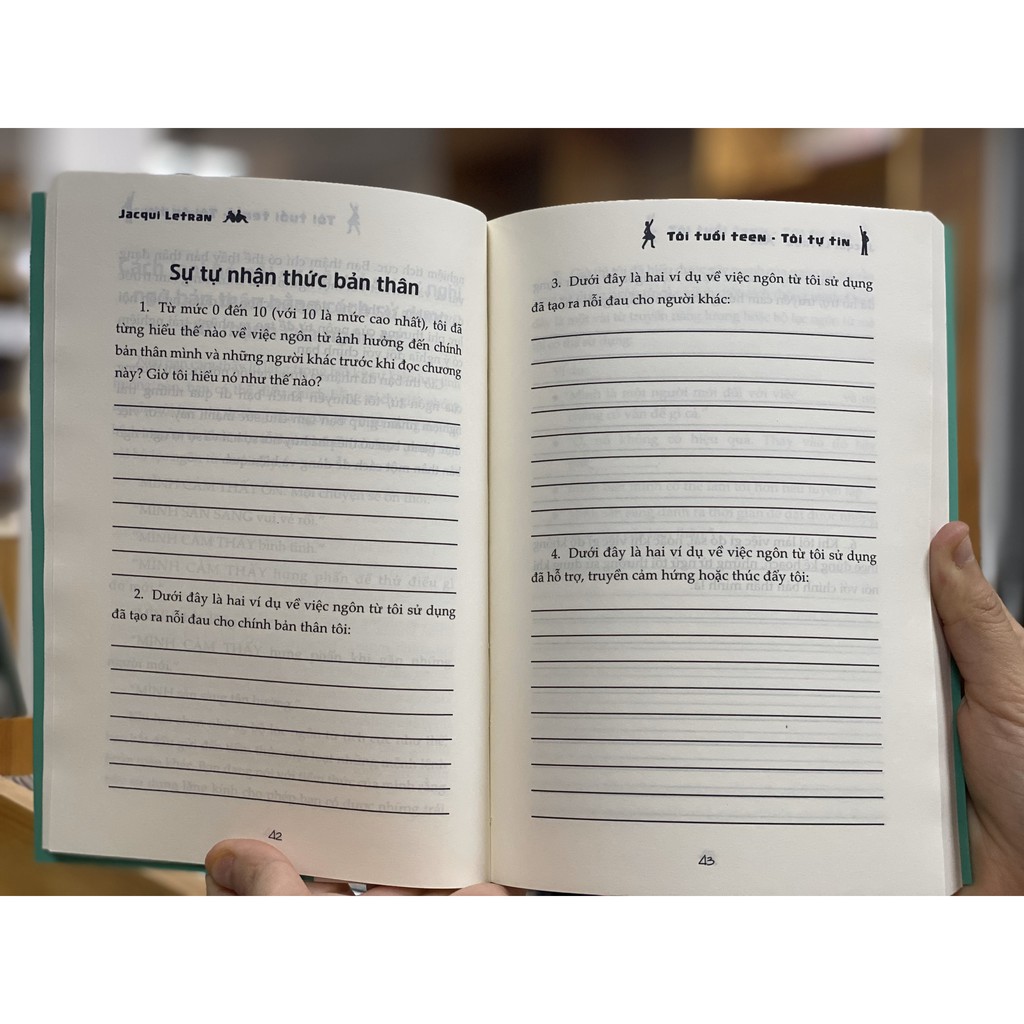 Jacqui Letran
Sự tự nhận thức bản thân
1. Từ mức 0 đến 10 (với 10 là mức cao nhất), tôi đã
từng hiểu thế nào về việc ngôn từ ảnh hưởng đến chính
bản thân mình và những người khác trước khi đọc chương
này? Giờ tôi hiểu nó như thế nào?
2. Dưới đây là hai ví dụ về việc ngôn từ tôi sử dụng
đã tạo ra nỗi đau cho chính bản thân tôi:
42
Tôi tuổi teen - Tôi tự tin
3. Dưới đây là hai ví dụ về việc ngôn từ tôi sử dụng
đã tạo ra nỗi đau cho người khác:
4. Dưới đây là hai ví dụ về việc ngôn từ tôi sử dụng
đã hỗ trợ, truyền cảm hứng hoặc thúc đẩy tôi:
43